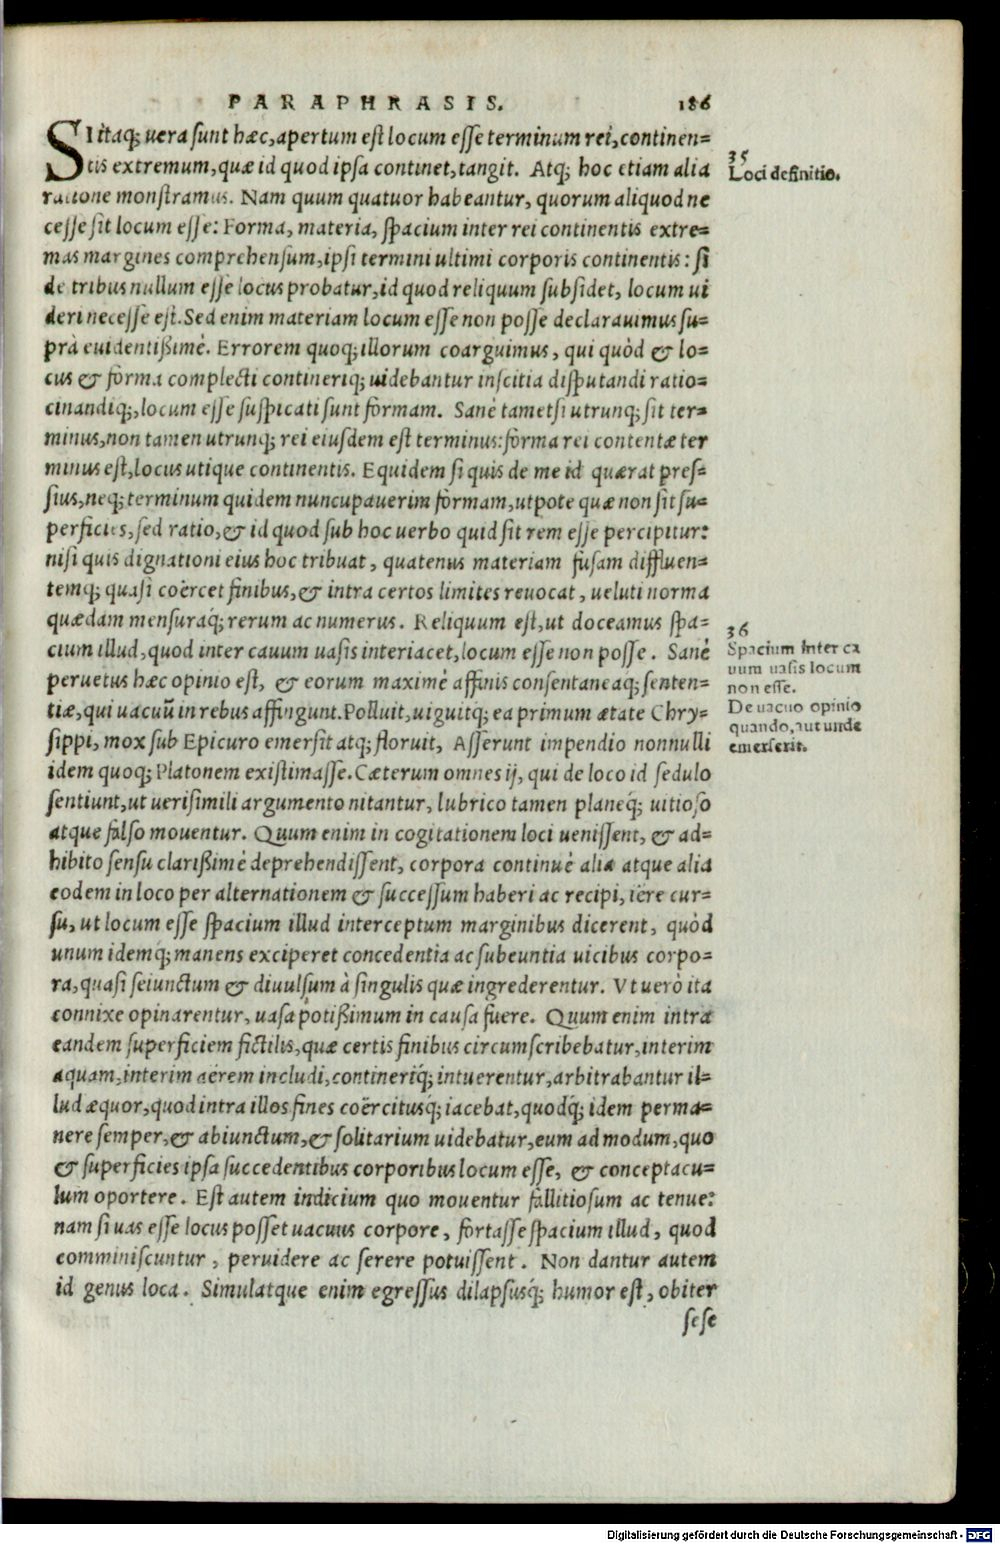 PARAPHRASIS. 186
SI itaq; uera sunt hæc, apertum est locum esse terminum rei, continen=
tis extremum, quæ id quod ipsa continet, tangit. Atq; hoc etiam alia
ratione monstramus. Nam quum quatuor habeantur, quorum aliquod ne
cesse sit locum esse: Forma, materia, spacium inter rei continentis extre=
mas margines comprehensum, ipsi termini ultimi corporis continentis: si
de tribus nullum esse locus probatur, id quod reliquum subsidet, locum ui
deri necesse est. Sed enim materiam locum esse non posse declarauimus su=
prà euidentißimè. Errorem quoq; illorum coarguimus, qui quòd & lo=
cus & forma complecti continériq; uidebantur inscitia disputandi ratio=
cinandiq;, locum esse suspicati sunt formam. Sanè tametsi utrunq; sit ter=
minus, non tamen utrunq; rei eiusdem est terminus: forma rei contentæ ter
minus est, locus utique continentis. Equidem si quis de me id quærat pres=
sius, neq; terminum quidem nuncupauerim formam, utpote quæ non sit su=
perficies, sed ratio, & id quod sub hoc uerbo quid sit rem esse percipitur:
nisi quis dignationi eius hoc tribuat, quatenus materiam fusam diffluen=
temq; quasi coërcet finibus, & intra certos limites reuocat, ueluti norma
quædam mensuraq́; rerum ac numerus. Reliquum est, ut doceamus spa=
cium illud, quod inter cauum uasis interiacet, locum esse non posse. Sanè
peruetus hæc opinio est, & eorum maximè affinis consentaneaq; senten=
tiæ, qui uacuũ in rebus affingunt. Polluit, uiguitq; ea primum ætate Chry=
sippi, mox sub Epicuro emersit atq; floruit, Asserunt impendio nonnulli
idem quoq; Platonem existimasse. Cæterum omnes ij, qui de loco id sedulo
sentiunt, ut uerisimili argumento nitantur, lubrico tamen planeq́; uitioso
atque falso mouentur. Quum enim in cogitationem loci uenissent, & ad=
hibito sensu clarißimè deprehendissent, corpora continuè alia atque alia
eodem in loco per alternationem & successum haberi ac recipi, iêre cur=
su, ut locum esse spacium illud interceptum marginibus dicerent, quòd
unum idemq́; manens exciperet concedentia ac subeuntia uicibus corpo=
ra, quasi seiunctum & diuulsum à singulis quæ ingrederentur. Vt uerò ita
connixe opinarentur, uasa potißimum in causa fuere. Quum enim intra
eandem superficiem fictilis, quæ certis finibus circumscribebatur, interim
aquam, interim aërem includi, continériq́; intuerentur, arbitrabantur il=
lud æquor, quod intra illos fines coërcitusq́; iacebat, quodq́; idem perma=
nere semper, & abiunctum, & solitarium uidebatur, eum ad modum, quo
& superficies ipsa succedentibus corporibus locum esse, & conceptacu=
lum oportere. Est autem indicium quo mouentur fallitiosum ac tenue:
nam si uas esse locus posset uacuus corpore, fortasse spacium illud, quod
comminiscuntur, peruidere ac serere potuissent. Non dantur autem
id genus loca. Simulatque enim egressus dilapsusq́; humor est, obiter
sese
35
Loci definitio.
36
Spacium inter ca
uum uasis locum
non esse.
De uacuo opinio
quando, aut unde
emerserit.
Digitalisierung gefördert durch die Deutsche Forschungsgemeinschaft - DFG